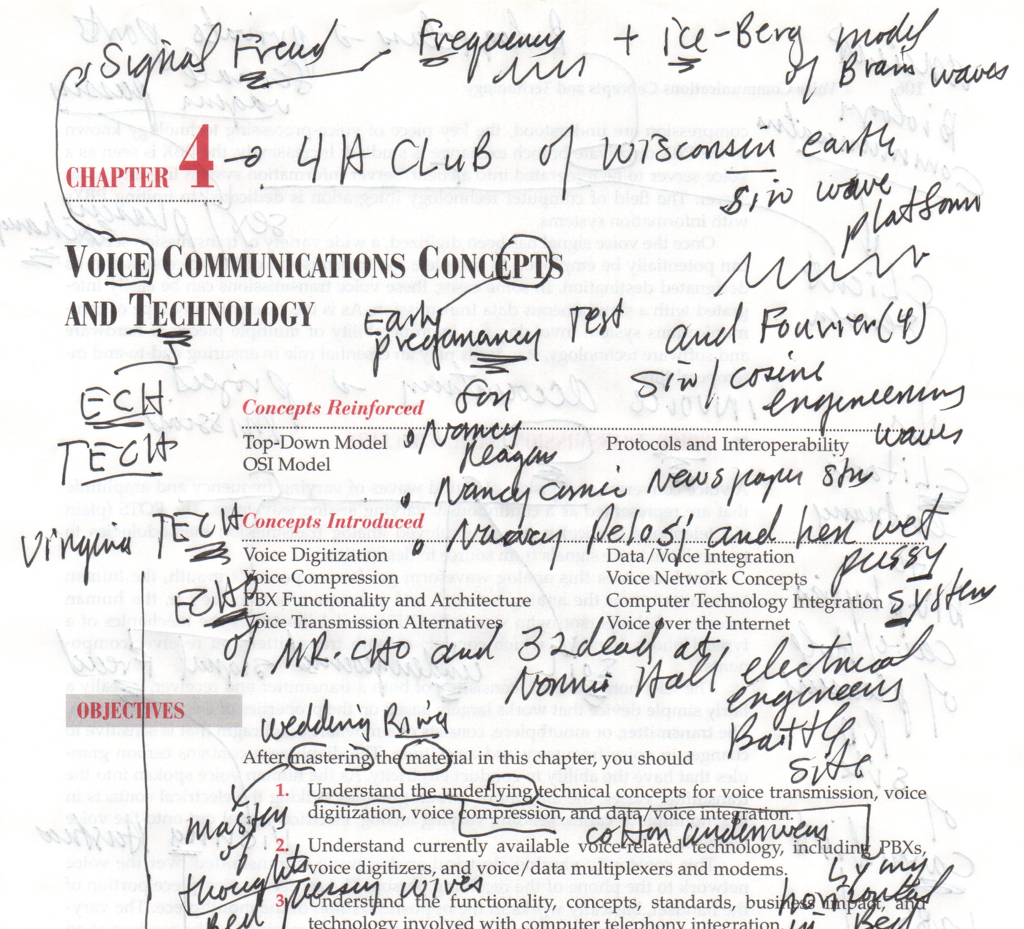 Signal Freud Frequency + ice-Berg model
of Brain waves
CHAPTER 4 → 4 H CLUB of Wisconsin earth
sin wave
platform
VOICE COMMUNICATIONS CONCEPTS
AND TECHNOLOGY
Early Test and Fourier(4)
pregenancy
sin/cosine
ECH
for
engineering
Concepts Reinforced
waves
TECH
Nancy
Reagan
Top-Down Model
Protocols and Interoperability
OSI Model
Nancy Comic Newspaper
TECH
Concepts Introduced
Nancy Pelosi and her wet
pussy
Virginia
Voice Digitization
Data/Voice Integration
Voice Compression
Voice Network Concepts
ECH
PBX Functionality and Architecture
Computer Technology Integration
System
Voice Transmission Alternatives
Voice over the Internet
of MR. CHO and 32 dead at
Norris Hall electrical
engineers
Battle
Site
OBJECTIVES
Wedding Ring
After mastering the material in this chapter, you should
1. Understand the underlying technical concepts for voice transmission, voice
digitization, voice compression, and data/voice integration.
Mastry
of
thoughts
cotton underwear
2. Understand currently available voice-related technology, including PBXs,
voice digitizers, and voice/data multiplexers and modems.
by my
pussy waves
3. Understand the functionality, concepts, standards, business impact, and
technology involved with computer telephony integration.
Bed
in Bed